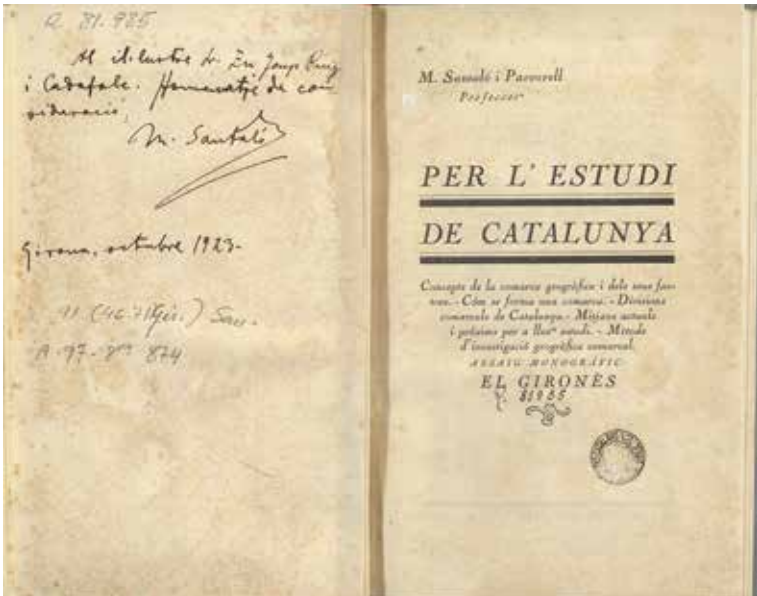 R 81.985
Al il·lustre Sr. En Josep Puig
i Cadafalc. Homenatge de con
sideració,
M. Santaló
Girona, octubre 1923-
91 (46.71 Gir.) San.
A. 97-8º 874
M. Santaló i Parvorell
Professor
PER L' ESTUDI
DE CATALUNYA
Concepte de la comarca geogràfica i dels seus fac-
tors. - Còm se forma una comarca. - Divisions
comarcals de Catalunya. - Mitjans actuals
i pròxims per a llur estudi. - Metode
d'investigació geogràfica comarcal.
ASSAIG MONOGRÀFIC
EL GIRONÈS
R. 81985